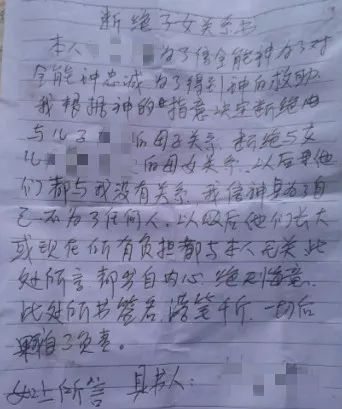 断绝子女关系书
本人 为了信全能神为了对
全能神忠诚为了得到神的救助
我根据神的指意决定断绝由
与儿子 的母子关系.断绝与女
儿 的母女关系.以后其他
们都与我没有关系.我信神是为了自
己.不为了任何人.以后他们长大
或现在所有负担都与本人无关.此
处所言都出自内心.绝不悔意.
此处所书签名.落笔千斤.一切后
果自己负责。
以上所言 具书人: